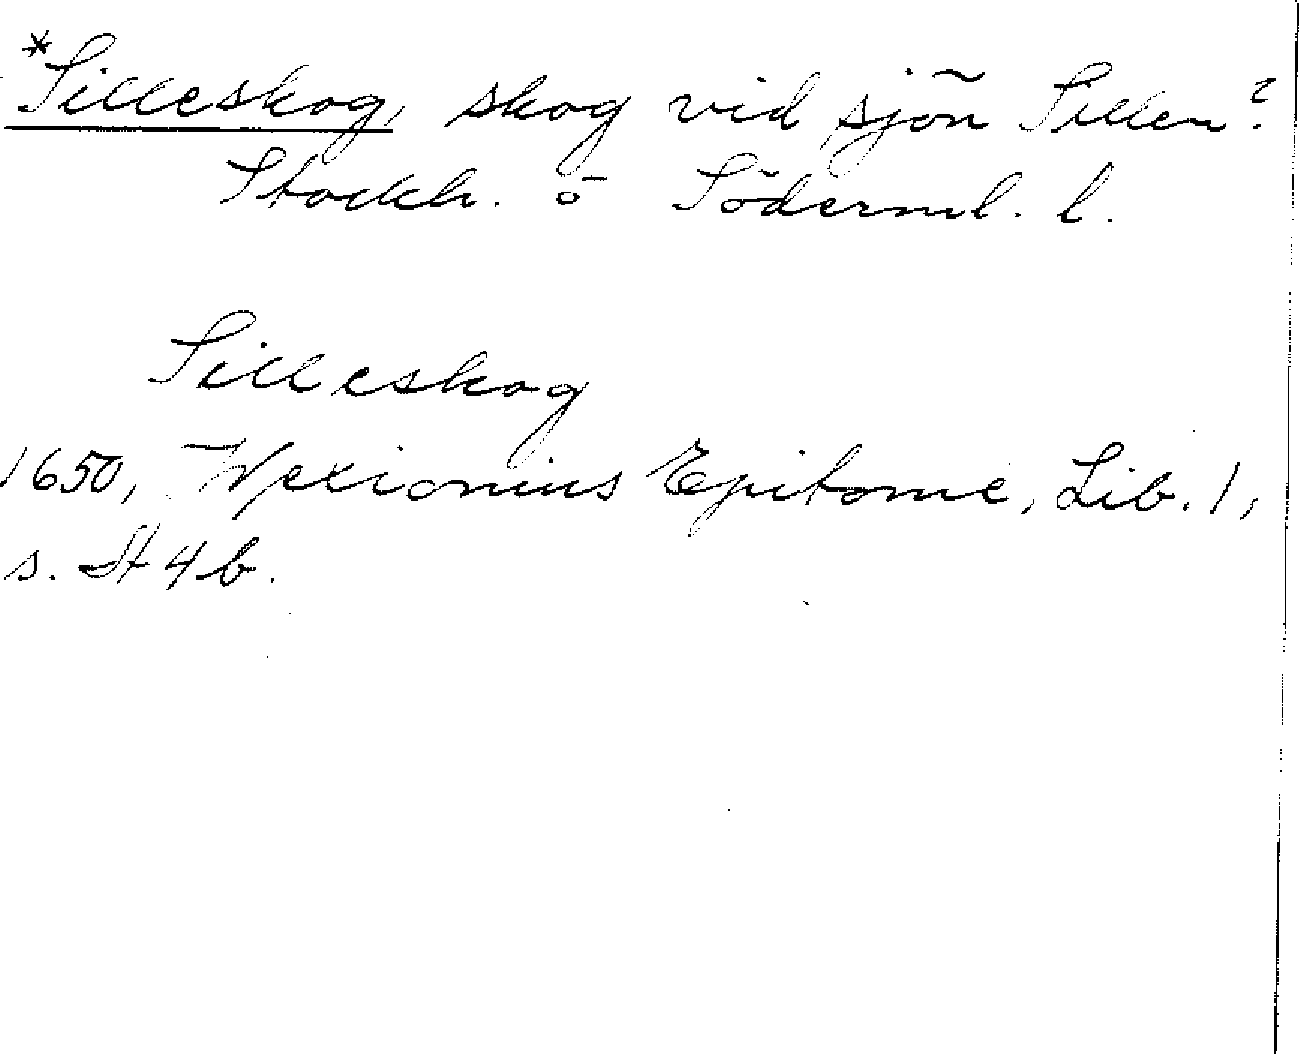 *Silleskog, skog vid sjön Sillen?
Stockh. o Söderml. l.
Silleskog
1650, Wexionius Epitome, Lib. 1,
s. 4 b.